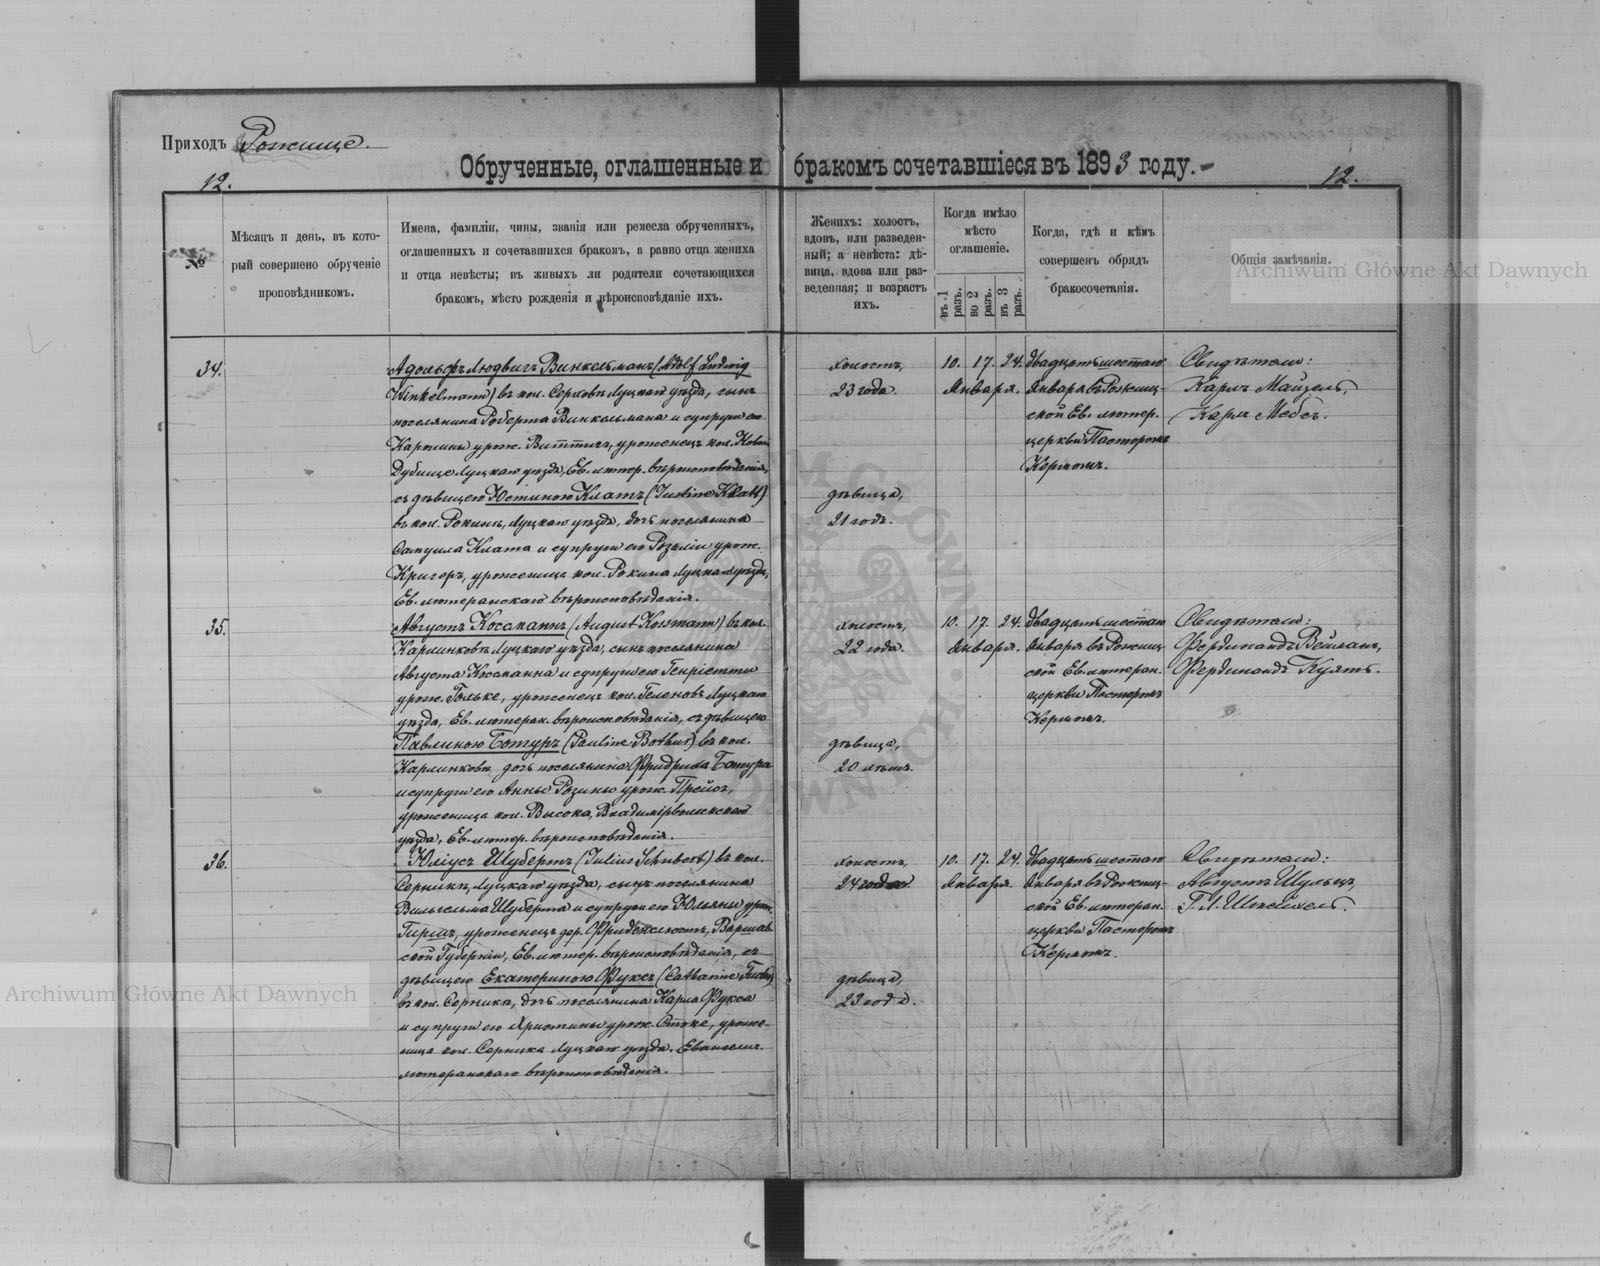 Приходъ Рожище.
Обрученные, оглашенные и бракомъ сочетавшіеся въ 1893 году.
12.
12.
№
Мѣсяцъ и день, въ кото-
рый совершено обрученіе
проповѣдникомъ.
Имена, фамиліи, чины, званія или ремесла обрученныхъ,
оглашенныхъ и сочетавшихся бракомъ, а равно отца жениха
и отца невѣсты; въ живыхъ ли родители сочетающихся
бракомъ, мѣсто рожденія и вѣроисповѣданіе ихъ.
Женихъ: холостъ,
вдовъ, или разведен-
ный; а невѣста: дѣ-
вица, вдова или раз-
веденная; и возрастъ
ихъ.
Когда имѣло
мѣсто
оглашеніе.
въ 1 разъ.
во 2 разъ.
въ 3 разъ.
Когда, гдѣ и кѣмъ
совершенъ обрядъ
бракосочетанія.
Общія замѣчанія.
Archiwum Główne Akt Dawnych
34.
Адольфъ Людвигъ Винкельманъ (Adolf Ludwig
Winkelmann) въ кол. Луцкаго уѣзда, сынъ
поселянина Роберта Винкельмана и супруги его
Каролины урож. Виттихъ, уроженецъ кол. Новой
Дубище Луцкаго уѣзда, Ев. лютер. вѣроисповѣданія,
съ дѣвицею Юстиною Клатъ (Justine Klatt)
въ кол. Рокинѣ, Луцкаго уѣзда, дочь поселянина
Самуила Клата и супруги его Розаліи урож.
Кригеръ, уроженица кол. Рокина Луцкаго уѣзда,
Ев. лютеранскаго вѣроисповѣданія.
холостъ,
23 года.
дѣвица,
21 годъ.
10. 17. 24.
Января.
Двадцать шестаго
Января въ Рожищ-
ской Ев. лютер.
церкви Пасторомъ
Керномъ.
Свидѣтели:
Карлъ Майзель,
Карлъ Мебсъ.
35.
Августъ Коссманъ (August Kossmann) въ кол.
Карлинковѣ Луцкаго уѣзда, сынъ поселянина
Августа Коссманна и супруги его Генріетты
урож. Гольке, уроженецъ кол. Геленовъ Луцкаго
уѣзда, Ев. лютеран. вѣроисповѣданія, съ дѣвицею
Павлиною Ботуръ (Pauline Bothur) въ кол.
Карлинковѣ, дочь поселянина Фридриха Ботура
и супруги его Анны Розины урож. Прейсъ,
уроженица кол. Высока, Владимірволынскаго
уѣзда, Ев. лютер. вѣроисповѣданія.
холостъ,
22 года.
дѣвица,
20 лѣтъ.
10. 17. 24.
Января.
Двадцать шестаго
Января въ Рожищ-
ской Ев. лютеран.
церкви Пасторомъ
Керномъ.
Свидѣтели:
Фердинандъ Вейманъ,
Фердинандъ Куятъ.
36.
Юліусъ Шубертъ (Julius Schubert) въ кол.
Серникъ, Луцкаго уѣзда, сынъ поселянина
Вильгельма Шуберта и супруги его Юліаны урож.
Гиршъ, уроженецъ дер. Варшав-
ской Губерніи, Ев. лютер. вѣроисповѣданія, съ
дѣвицею Екатериною Фуксъ (Catharine Fuchs)
въ кол. Серникѣ, дочь поселянина Карла Фукса
и супруги его Христины урож. Отке, уроже-
ница кол. Серника Луцкаго уѣзда. Евангелич.
лютеранскаго вѣроисповѣданія.
холостъ,
24 года.
дѣвица,
23 года.
10. 17. 24.
Января.
Двадцать шестаго
Января въ Рожищ-
ской Ев. лютеран.
церкви Пасторомъ
Керномъ.
Свидѣтели:
Августъ Шульцъ,
Archiwum Główne Akt Dawnych